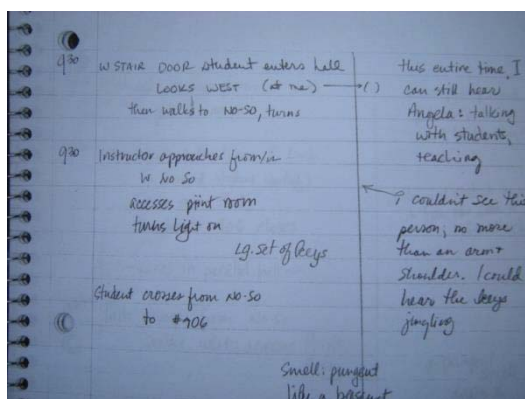 930 W STAIR DOOR student enters hall
LOOKS WEST (at me) → ( )
then walks to NO-SO, turns
930 Instructor approaches from/in
W NO SO
accesses print room
turns light on
Lg. set of keys
Student crosses from NO-SO
to #906
this entire time, I
can still hear
Angela: talking
with students,
teaching
I couldn't see this
person; no more
than an arm +
shoulder. I could
hear the keys
jingling
Smell: pungent
like a